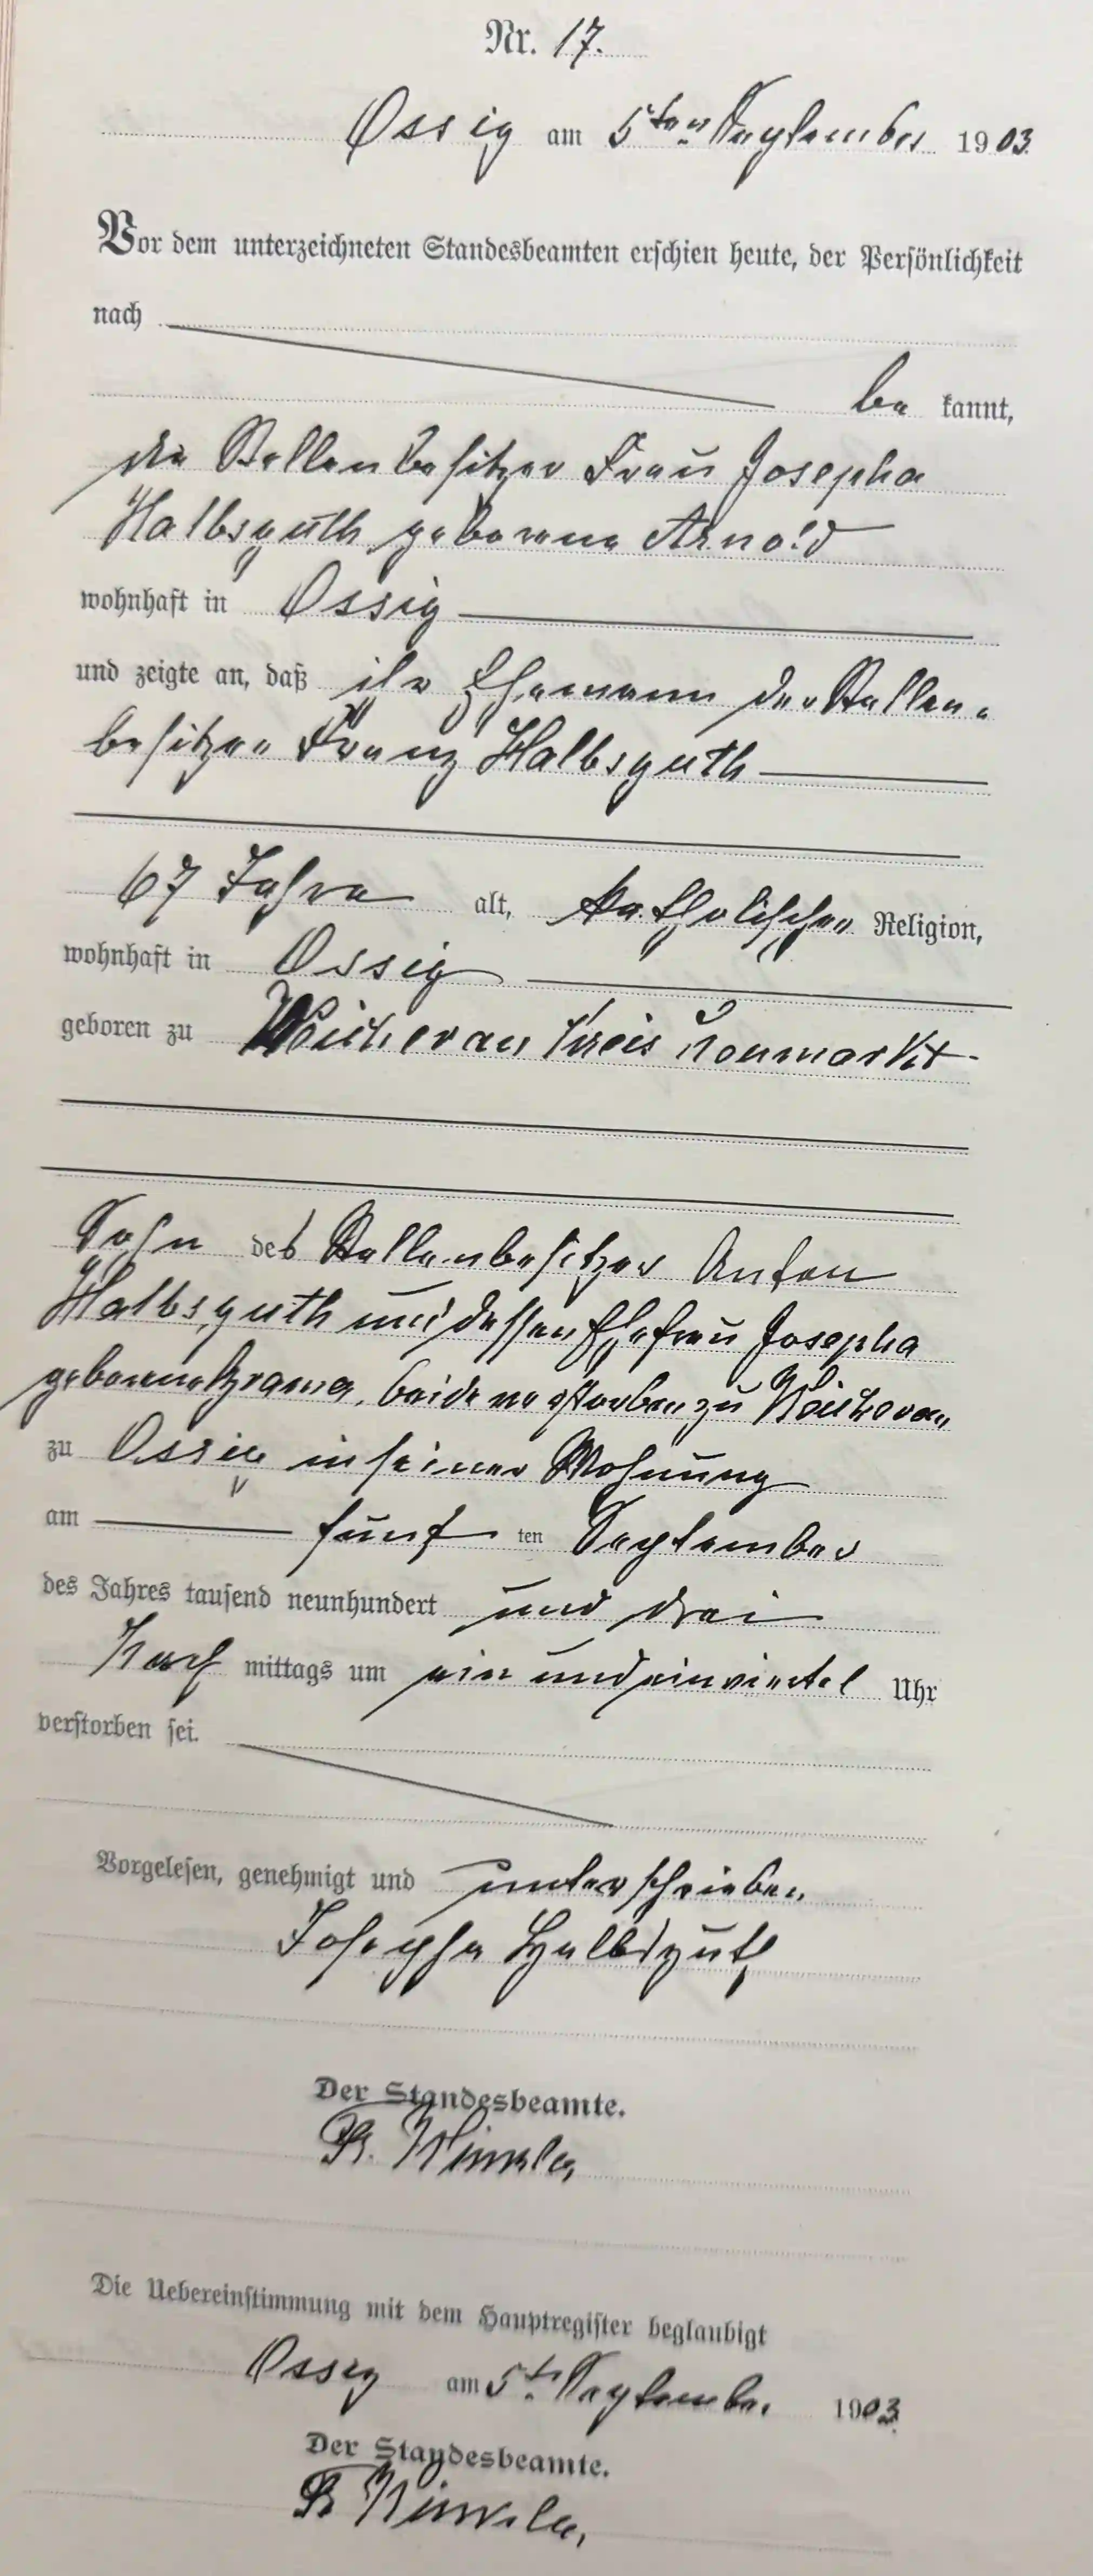 Nr. 17.
Ossig am 5ten September 1903
Vor dem unterzeichneten Standesbeamten erschien heute, der Persönlichkeit
nach
be kannt,
die Stellenbesitzer Frau Josepha
Halbsguth geborene Arnold
wohnhaft in Ossig
und zeigte an, daß ihr Ehemann der Stellen-
besitzer Franz Halbsguth
67 Jahre alt, katholischer Religion,
wohnhaft in Ossig
geboren zu Weicherau Kreis Neumarkt
Sohn des Stellenbesitzer Anton
Halbsguth und dessen Ehefrau Josepha
geborene beide verstorben zu Weicherau
zu Ossig in seiner Wohnung
am fünf ten September
des Jahres tausend neunhundert und drei
Nach mittags um ein und einviertel Uhr
verstorben sei.
Vorgelesen, genehmigt und unterschrieben
Josepha Halbsguth
Der Standesbeamte.
Die Uebereinstimmung mit dem Hauptregister beglaubigt
Ossig am 5t. September 1903
Der Standesbeamte.